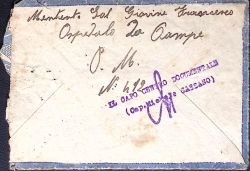 Mentente Dal Giovine Francesco
Ospedale Da Campo
P. M.
N. 492
IL CAPO CENTRO DOCUMENTALE
(Cap. CASSANO)